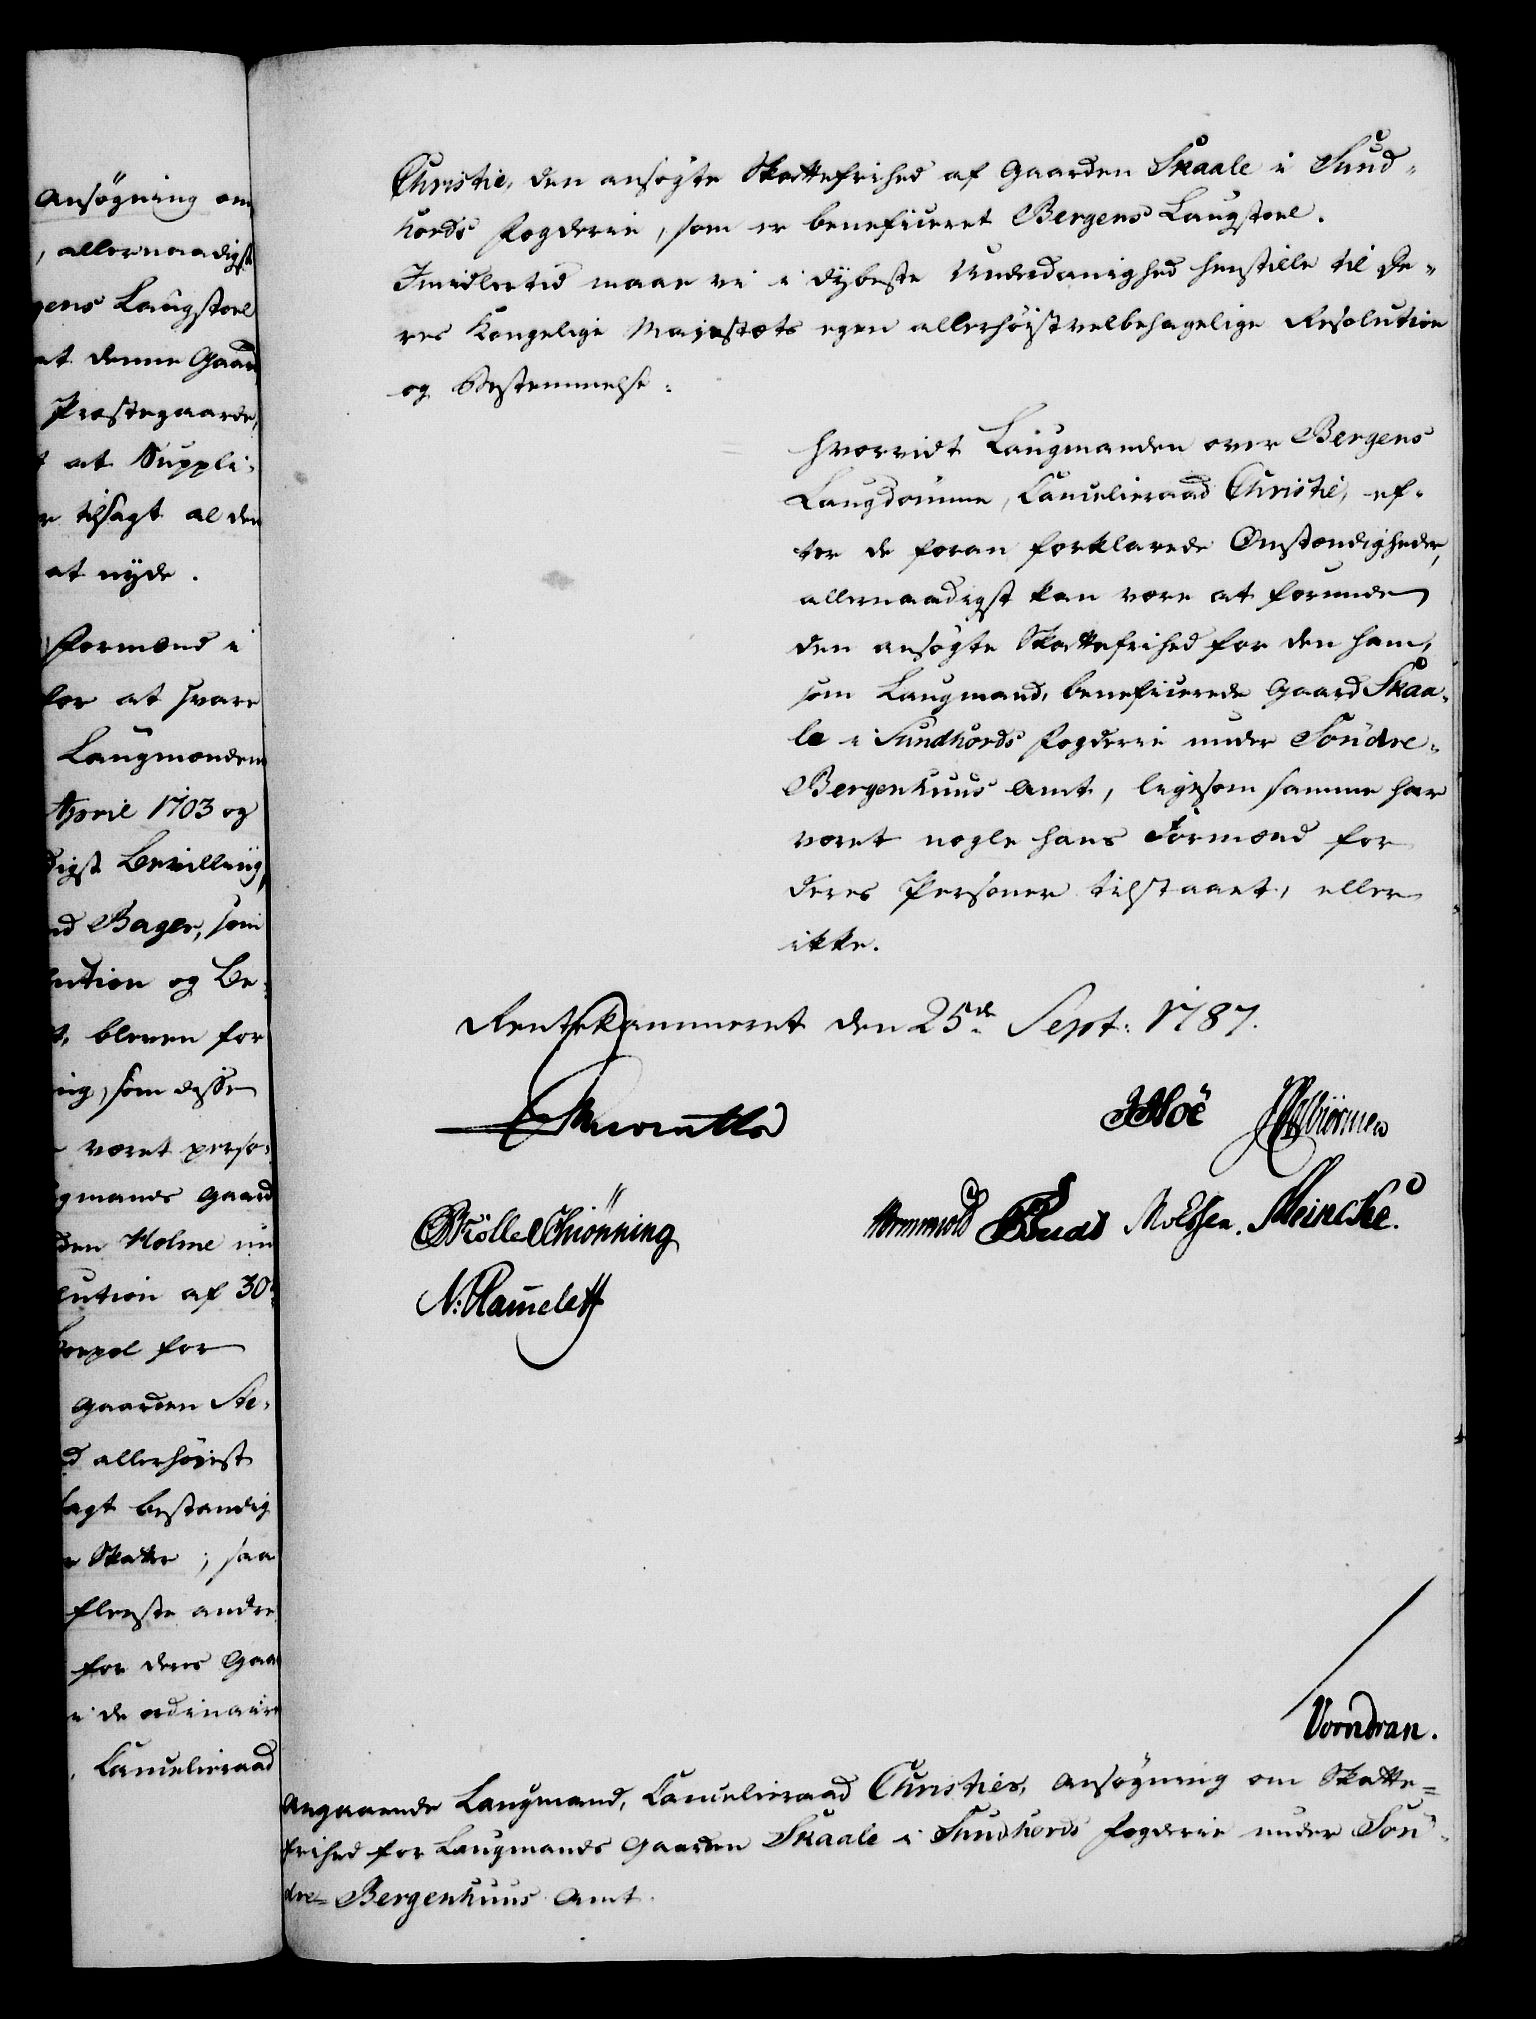 Ansøgning om
, allernaadigst
gens Laugstoel
at denne Gaard
Præstegaarde,
at Suppli-
tilsagt al den
at nyde.
Formænd i
for at svare
Laugmanden
April 1703 og
digst Bevilling,
nd Bager, som
lution og Be-
bleven for
ing, som disse
været perso-
gmands Gaard
den Holme un
lution af 30
for
Gaarden Ste-
d allerhøist
sagt bestandig
Skatter; saa
fleeste andre
for deres Gaa
de ordinaire
Cancelieraad
Christie, den ansøgte Skattefrihed af Gaarden Skaale i Sund-
hords Fogderie, som er beneficeret Bergens Laugstoel.
Imidlertid maae vi i dybeste Underdanighed henstille til De-
res Kongelige Majestæts egen allerhøistvelbehagelige Resolution
og Bestemmelse:
Hvorvidt Laugmanden over Bergens
Laugdømme, Cancelieraad Christie, ef-
ter de foran forklarede Omstændigheder,
allernaadigst kan være at forunde
den ansøgte Skattefrihed for den ham,
som Laugmand, beneficerede Gaard Skaa-
le i Sundhords Fogderie under Søndre-
Bergenhuus Amt, ligesom samme har
været nogle hans Formænd for
deres Personer tilstaaet, eller
ikke.
Rentekammeret den 25de Sept: 1787.
Hoë
Schiønning
Wormskiold Meincke.
Vorndran.
Angaaende Laugmand, Cancelieraad Christies, Ansøgning om Skatte=
frihed for Laugmands Gaarden Skaale i Sundhords Fogderie under Søn-
dre= Bergenhuus Amt.